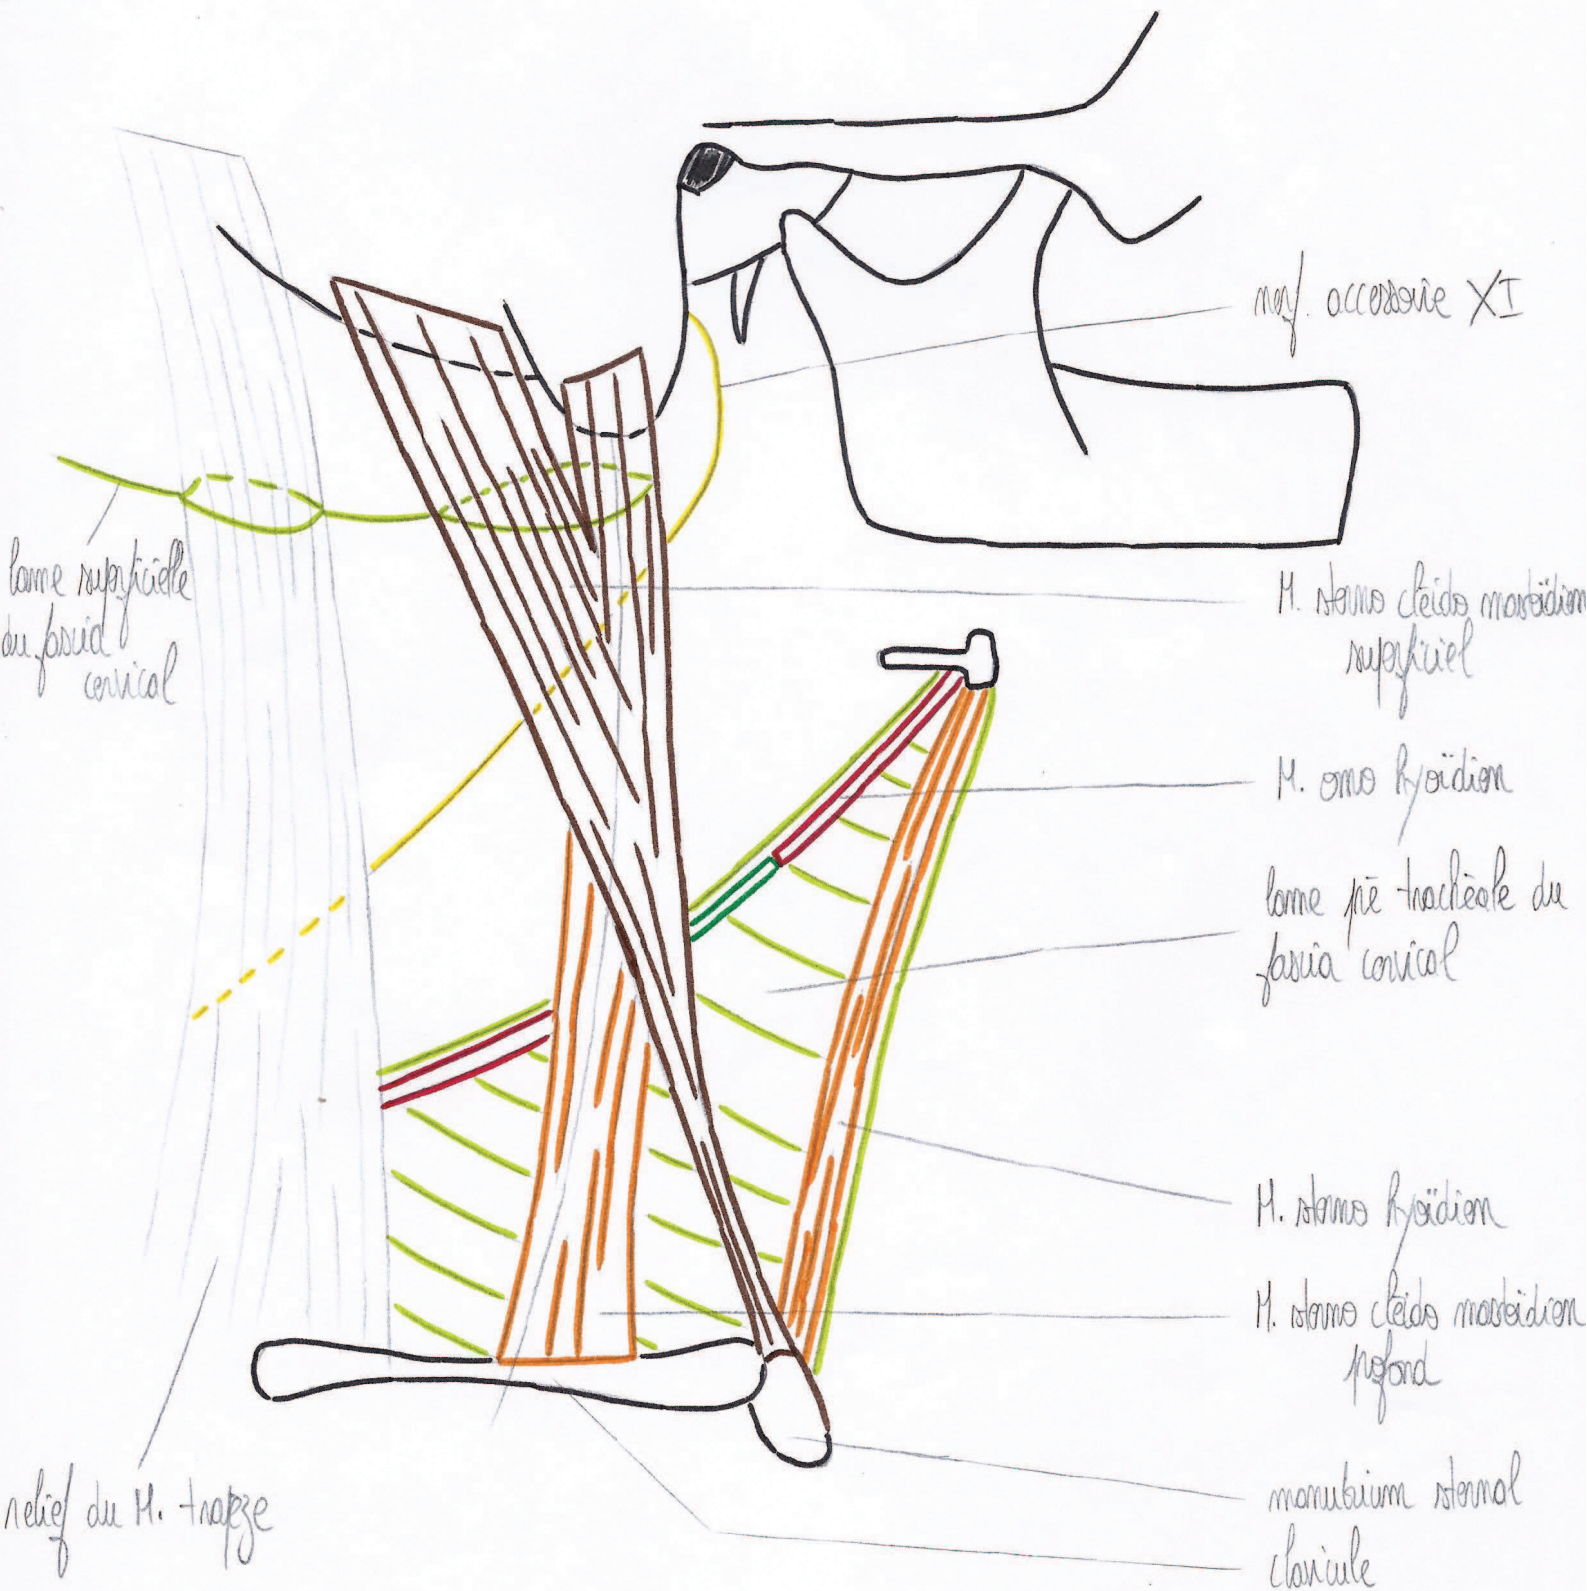 nerf. accessoire XI
lame superficielle
du fascia
cervical
M. sterno cléido mastoïdien
superficiel
M. omo hyoïdien
lame pré trachéale du
fascia cervical
M. sterno hyoïdien
M. sterno cléido mastoïdien
profond
relief du M. trapèze
manubrium sternal
clavicule